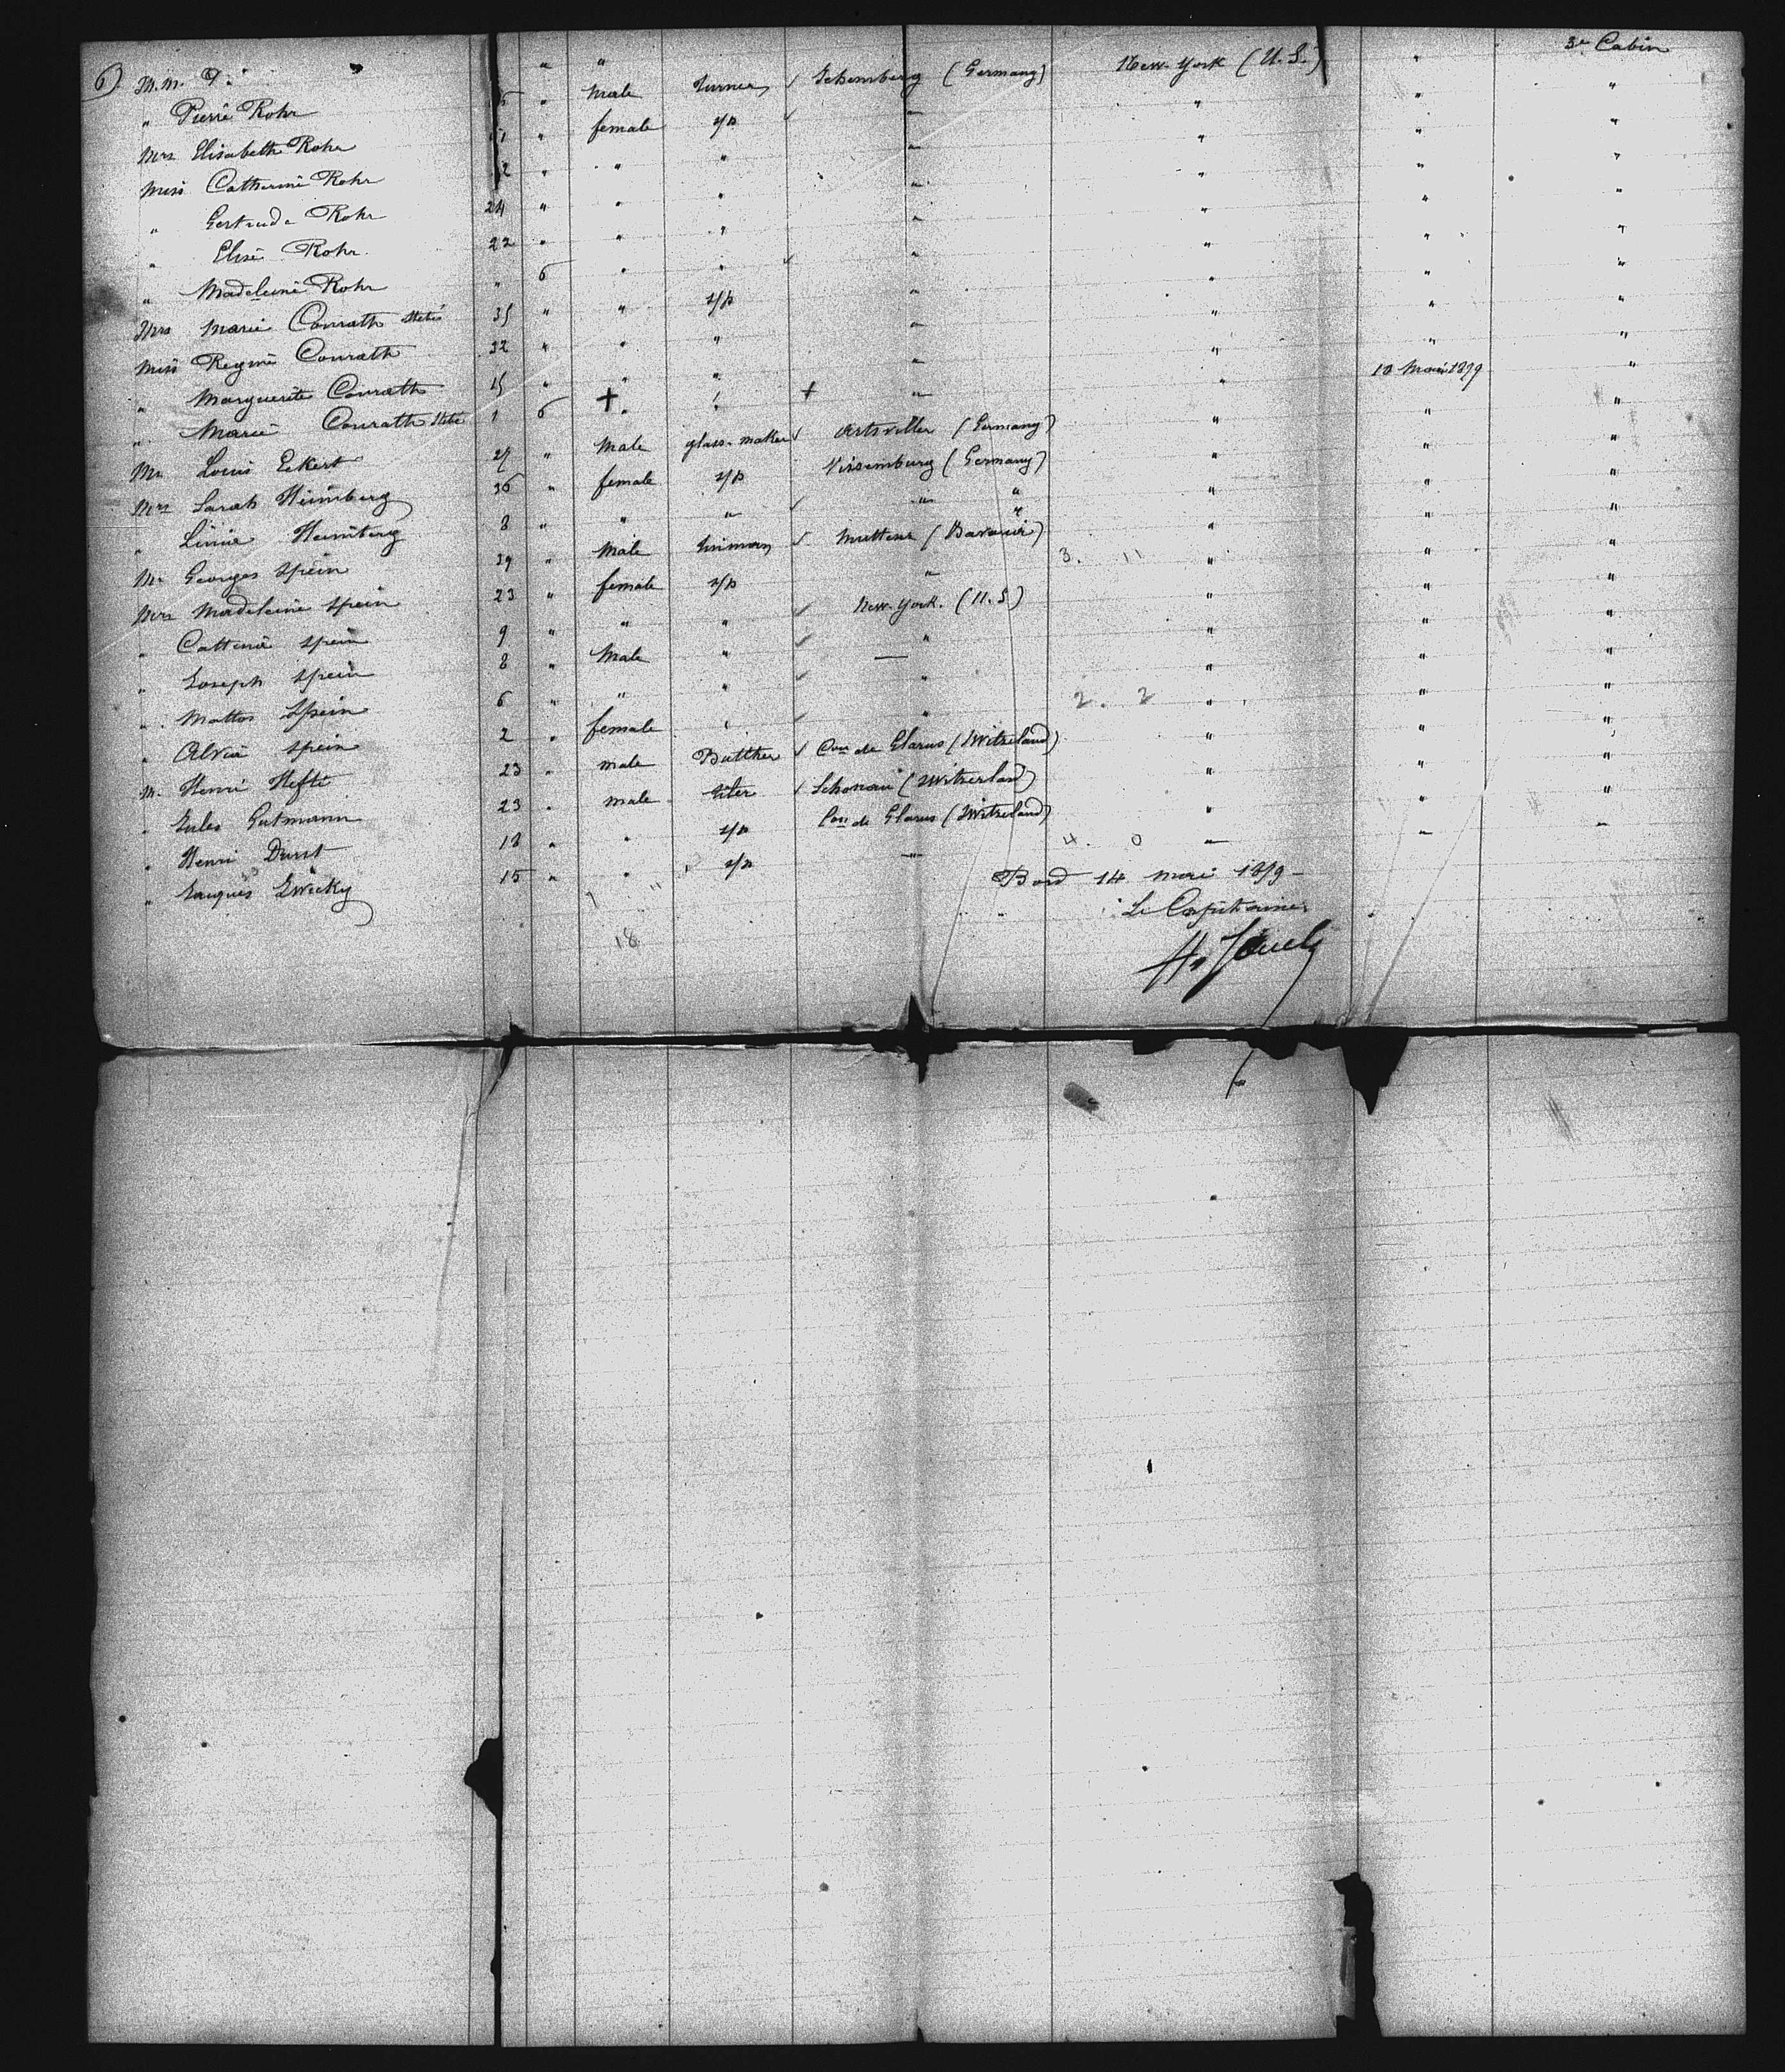 6) M.M.
" Pierre Rohr " Male Turner Schemberg (Germany) New-York (U.S.) " 3e Cabin
Mrs Elisabeth Rohr " female s/p " " " "
Miss Catherine Rohr " " " " " " "
" Gertrude Rohr 24 " " " " " " "
" Elise Rohr 22 " " " " " " "
" Madeleine Rohr " 6 " " " " " "
Mrs Marie Conrath 35 " " s/p " " " "
Miss Regine Conrath 32 " " " " " " "
" Marguerite Conrath 15 " " " " " " "
" Marie Conrath 1 6 + " + " " 10 Mai 1879 "
Mr Louis Eckert 27 " Male glass-maker (Germany) " " "
Mrs Sarah Heimberg 36 " female s/p (Germany) " " "
" Heimberg 8 " " " " " " " "
Mr Georges Spein 29 " Male Mutters (Baviere) 3. 11 " " "
Mrs Madeleine Spein 23 " female s/p " " " "
" Spein 9 " " " New-York. (U.S) " " "
" Joseph Spein 8 " Male " " " " "
" Mattos Spein 6 " " " " 2. 2 " " "
" Spein 2 " female " " " " "
M. Henri Hefti 23 " male Butther Con de Glarus (Switzeland) " " "
" Jules Gutmann 23 " male (Switzerland) " " "
" Henri Durst 18 " " s/p Con de Glarus (Switzeland) " " "
" Jaques Zwicky 15 " " s/p " 4. 0 " " "
Bord 14 mai 1879 -
Le Capitaine
18